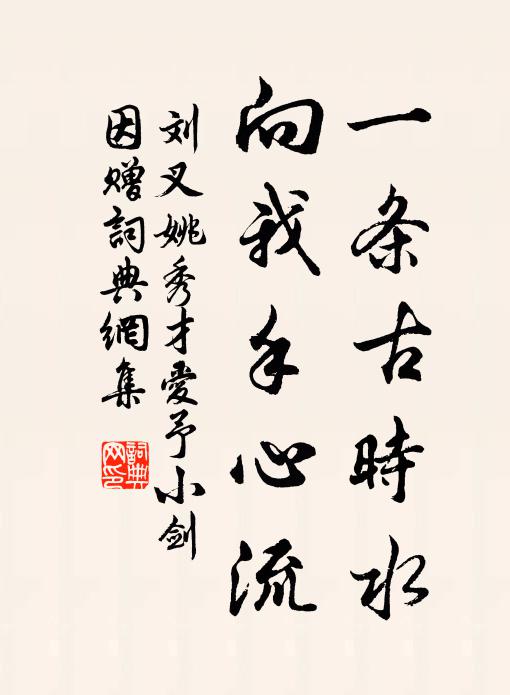 一条古時水
向我手心流
刘叉姚秀才愛予小劍
因赠詞典網集
詞典网印